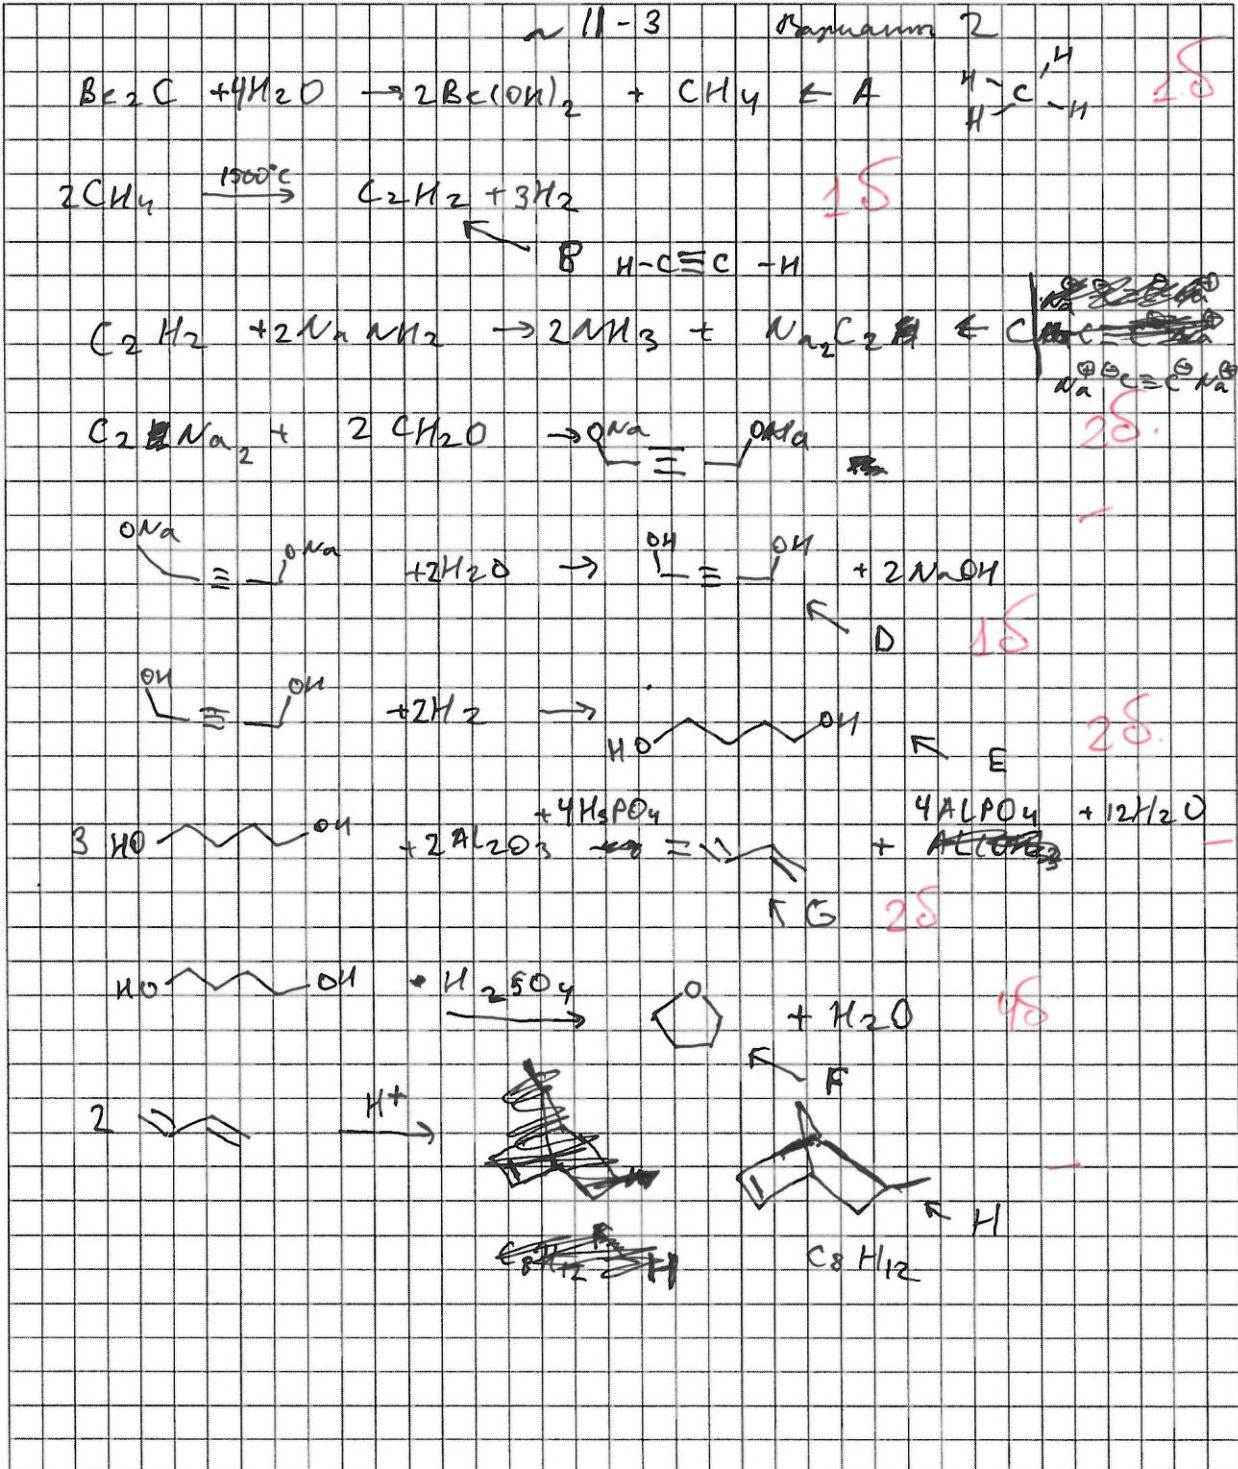 ~ 11-3 Вариант 2
Be₂C + 4H₂O → 2Be(OH)₂ + CH₄ ← A H C H H H 1б
2CH₄ 1500°C → C₂H₂ + 3H₂ 1б
B H-C≡C-H
C₂H₂ + 2NaNH₂ → 2NH₃ + Na₂C₂ ← C
Na⊕ ⊖C≡C⊖ Na⊕
C₂Na₂ + 2CH₂O → ONa ≡ ONa 2б.
ONa ≡ ONa + 2H₂O → OH ≡ OH + 2NaOH
D 1б
OH ≡ OH + 2H₂ → HO OH 2б.
E
3 HO OH + 2Al₂O₃ + 4H₃PO₄ → + 4AlPO₄ + 12H₂O
G 2б
HO OH H₂SO₄ → O + H₂O 4б
F
2 H⁺ →
H
C₈H₁₂